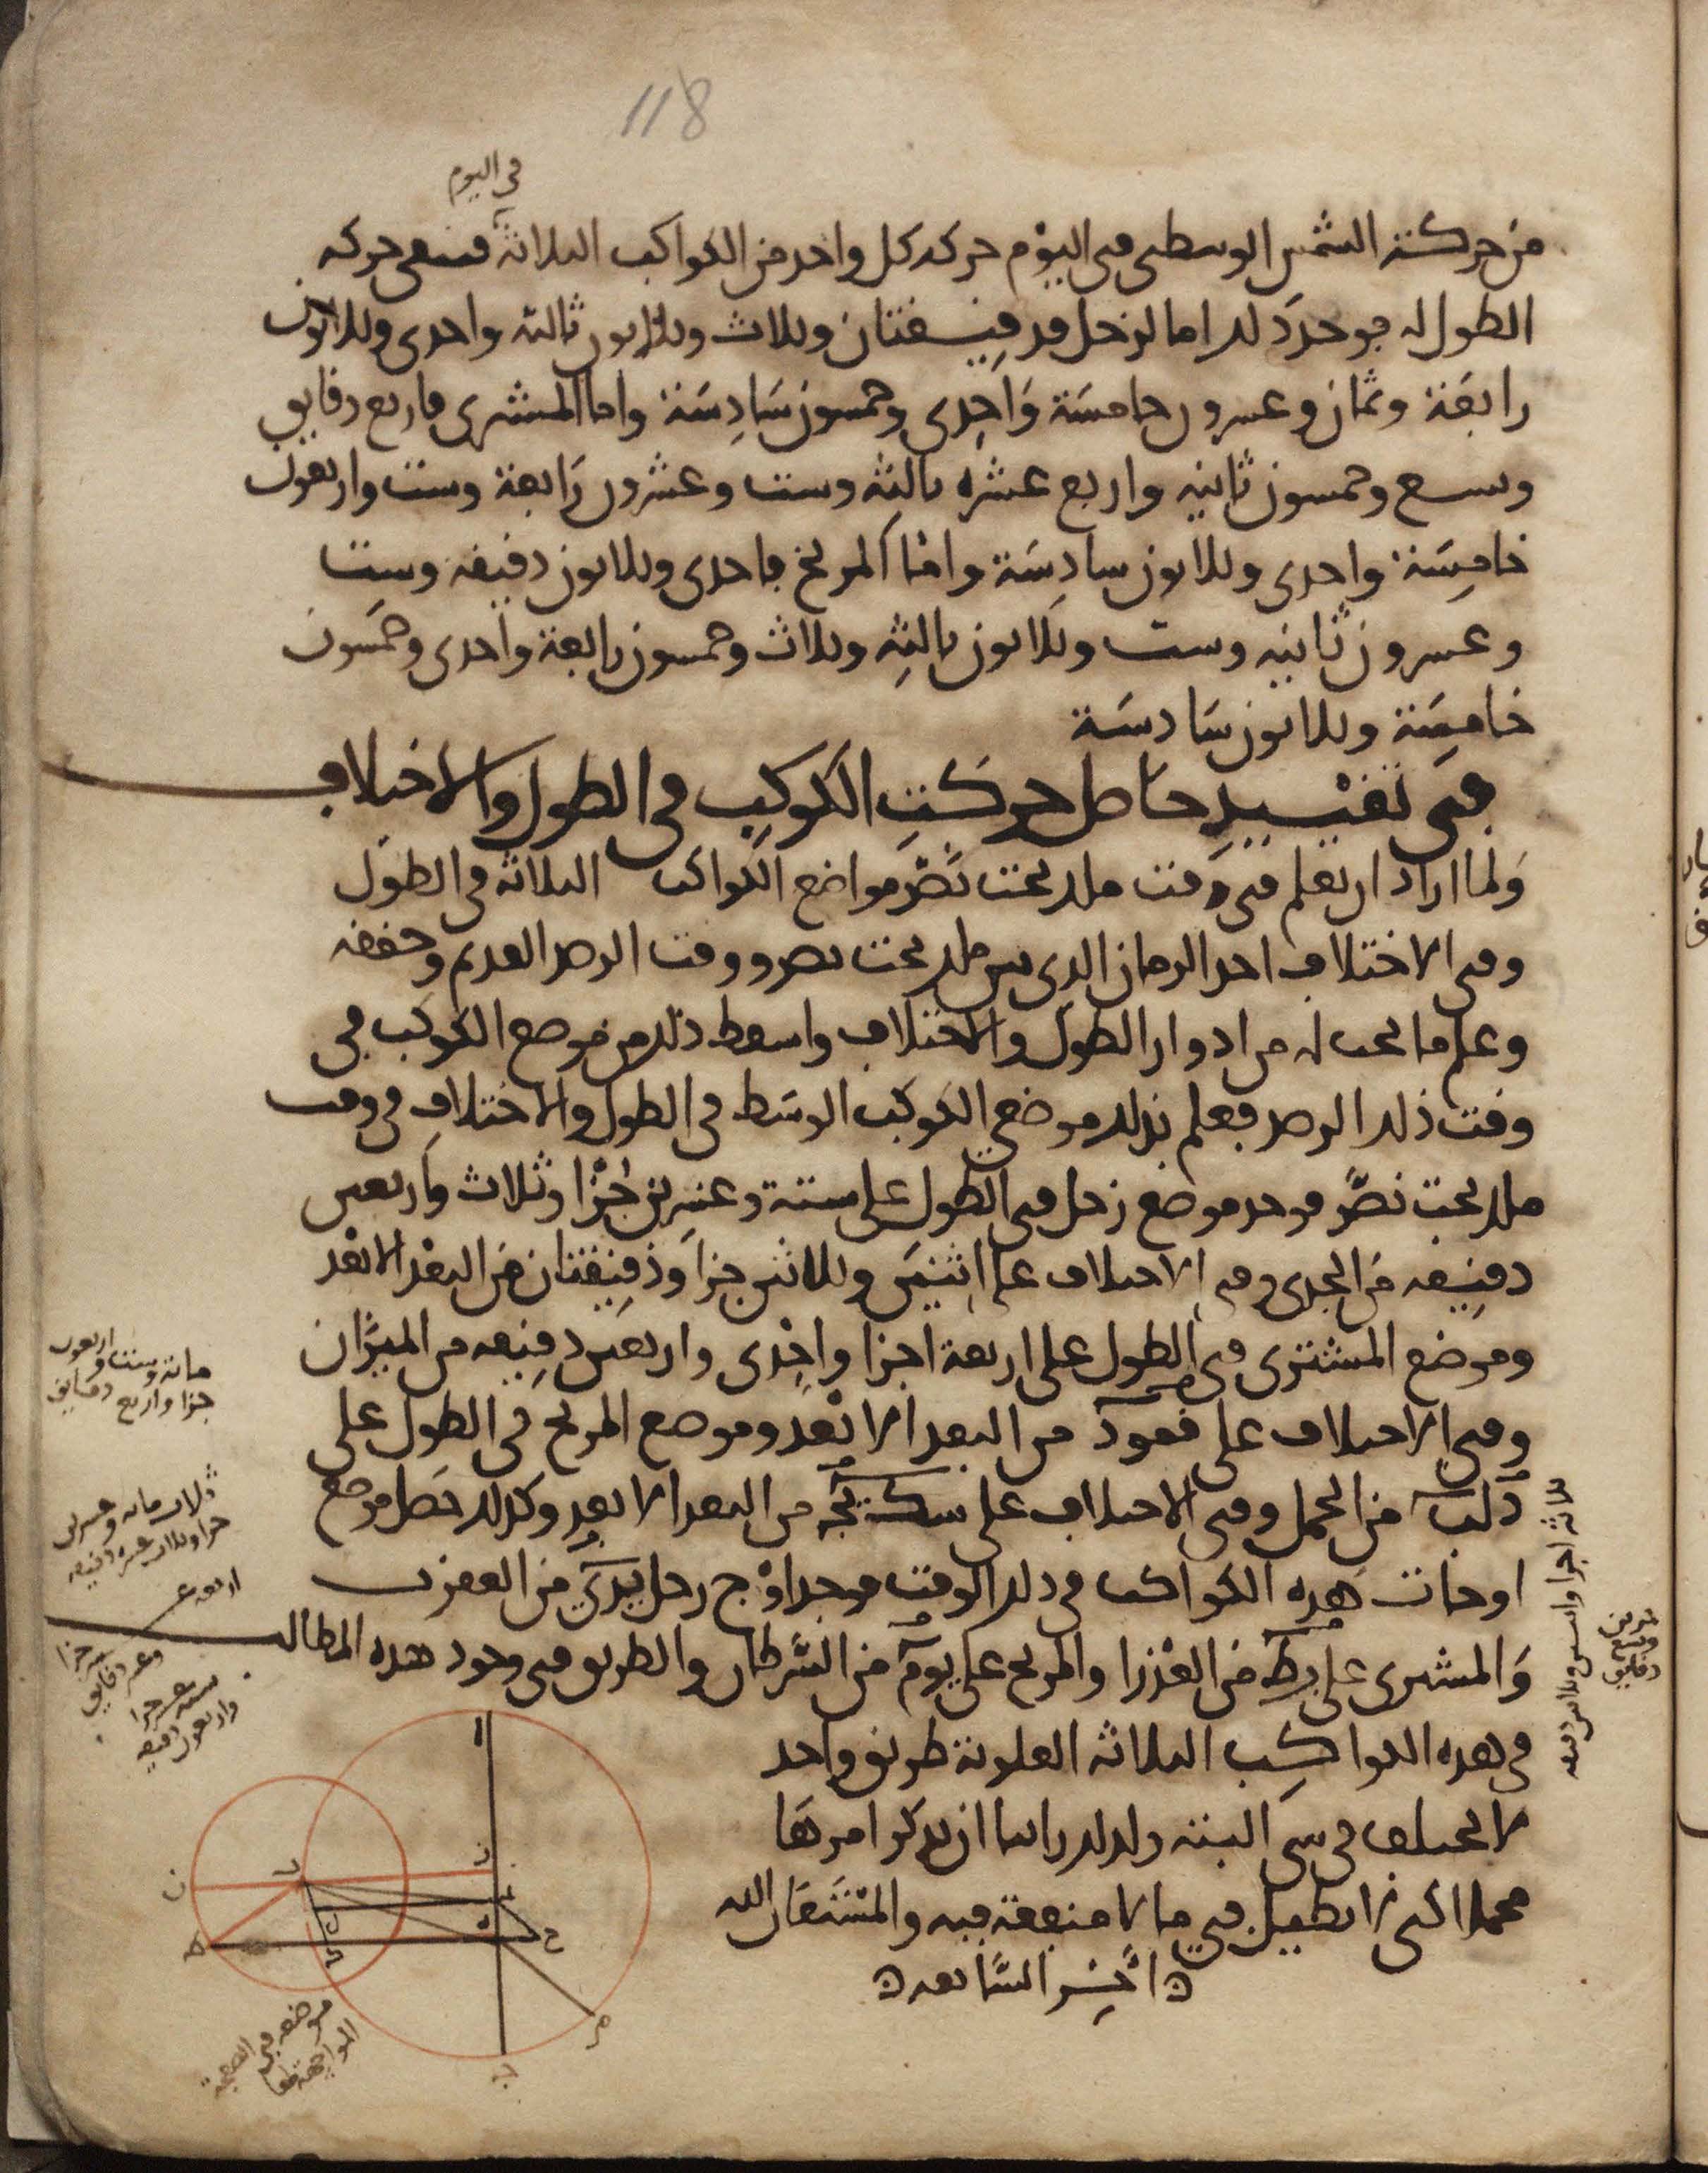 118
في اليوم
من حركة الشمس الوسطى في اليوم حركه كل واحد من الكواكب الثلاثة فتبقى حركه
الطول له فوجد ذلك اما لزحل فدقيقتان وثلاث وثلاثون ثالثة واحدى وثلاثون
رابعة وثمان وعشرون خامسة واحدى وخمسون سادسة واما المشتري فاربع دقايق
وتسع وخمسون ثانيه واربع عشره ثالثه وست وعشرون رابعة وست واربعون
خامسة واحدى وثلاثون سادسة واما المريخ فاحدى وثلاثون دقيقه وست
وعشرون ثانيه وست وثلاثون ثالثه وثلاث وخمسون رابعة واحدى وخمسون
خامسة وثلاثون سادسة
في تقييد حاصل حركت الكوكب في الطول والاختلاف
ولما اراد ان يعلم في وقت ملك بخت نصر مواضع الكواكب الثلاثه في الطول
وفي الاختلاف اخذ الزمان الذي بين ملك بخت نصر ووقت الرصد القديم وحققه
وعلم ما يجب له من ادوار الطول والاختلاف واسقط ذلك من موضع الكوكب في
وقت ذلك الرصد فعلم بذلك موضعي الكوكب الوسط في الطول والاختلاف في وقت
ملك بخت نصر فوجد موضع زحل في الطول على ستة وعشرين جزا وثلاث واربعين
دقيقه من الجدي وفي الاختلاف على اثنين وثلاثين جزا ودقيقتان من البعد الابعد
وموضع المشتري في الطول على اربعة اجزا واحدى واربعين دقيقه من الميزان
وفي الاختلاف على قمو د من البعد الابعد وموضع المريخ في الطول على
ج لب من الحمل وفي الاختلاف على شكز يج من البعد الابعد وكذلك حصل موضع
اوجات هذه الكواكب في ذلك الوقت فوجد اوج زحل يد ي من العقرب
والمشتري على ب ط من العذرا والمريخ على يو م من السرطان والطريق في وجود هذه المطالب
في هذه الكواكب الثلاثه العلوية طريق واحد
لا يختلف في شي البتة ولذلك راينا ان نذكر امرها
مجملا لكي لا نطيل في ما لا منفعة فيه والمستعان الله
اخر السابعه
مائة وست واربعون
جزا واربع دقايق
ثلاث مايه وعشرين
جزا وثلاث عشره دقيقه
اربعه عشر
جزا
وعشر دقايق
سته عشر جزا
واربعون دقيقه
ثلاثة اجزا واثنين وثلاثين دقيقه
جزين
وتسع
دقايق
موضعه في الصفحة
المواجهة لها